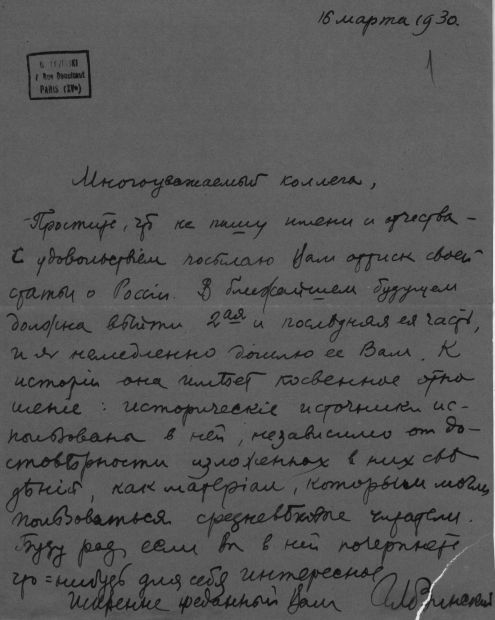 16 марта 1930.
1
Rue
PARIS (XVe)
Многоуважаемый коллега,
Простите, что не пишу имени и отчества –
С удовольствіем посылаю Вам оттиск своей
статьи о Россіи. В ближайшем будущем
должна выйти 2ая и последняя ея часть,
и я немедленно дошлю ее Вам. К
исторіи она имѣет косвенное отно
шеніе: историческіе источники ис-
пользованы в ней, независимо от до-
стовѣрности изложенных в них свѣ
дѣній, как матеріал, которым могли
пользоваться средневѣковые читатели.
Буду рад, если Вы в ней почерпнете
что=нибудь для себя интересное
Искренне преданный Вам